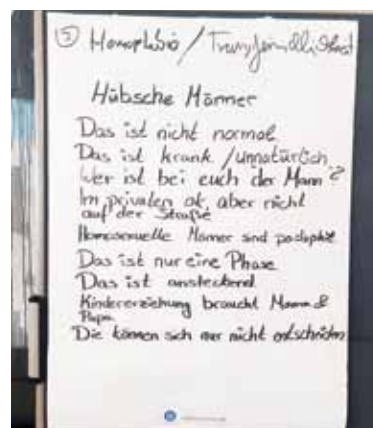 5 Homophobie / Transfeindlichkeit
Hübsche Männer
Das ist nicht normal
Das ist krank / unnatürlich
Wer ist bei euch der Mann?
Im privaten ok, aber nicht
auf der Straße
Homosexuelle Männer sind pädophil
Das ist nur eine Phase
Das ist ansteckend
Kindererziehung braucht Mama &
Papa
Die können sich nur nicht entscheiden